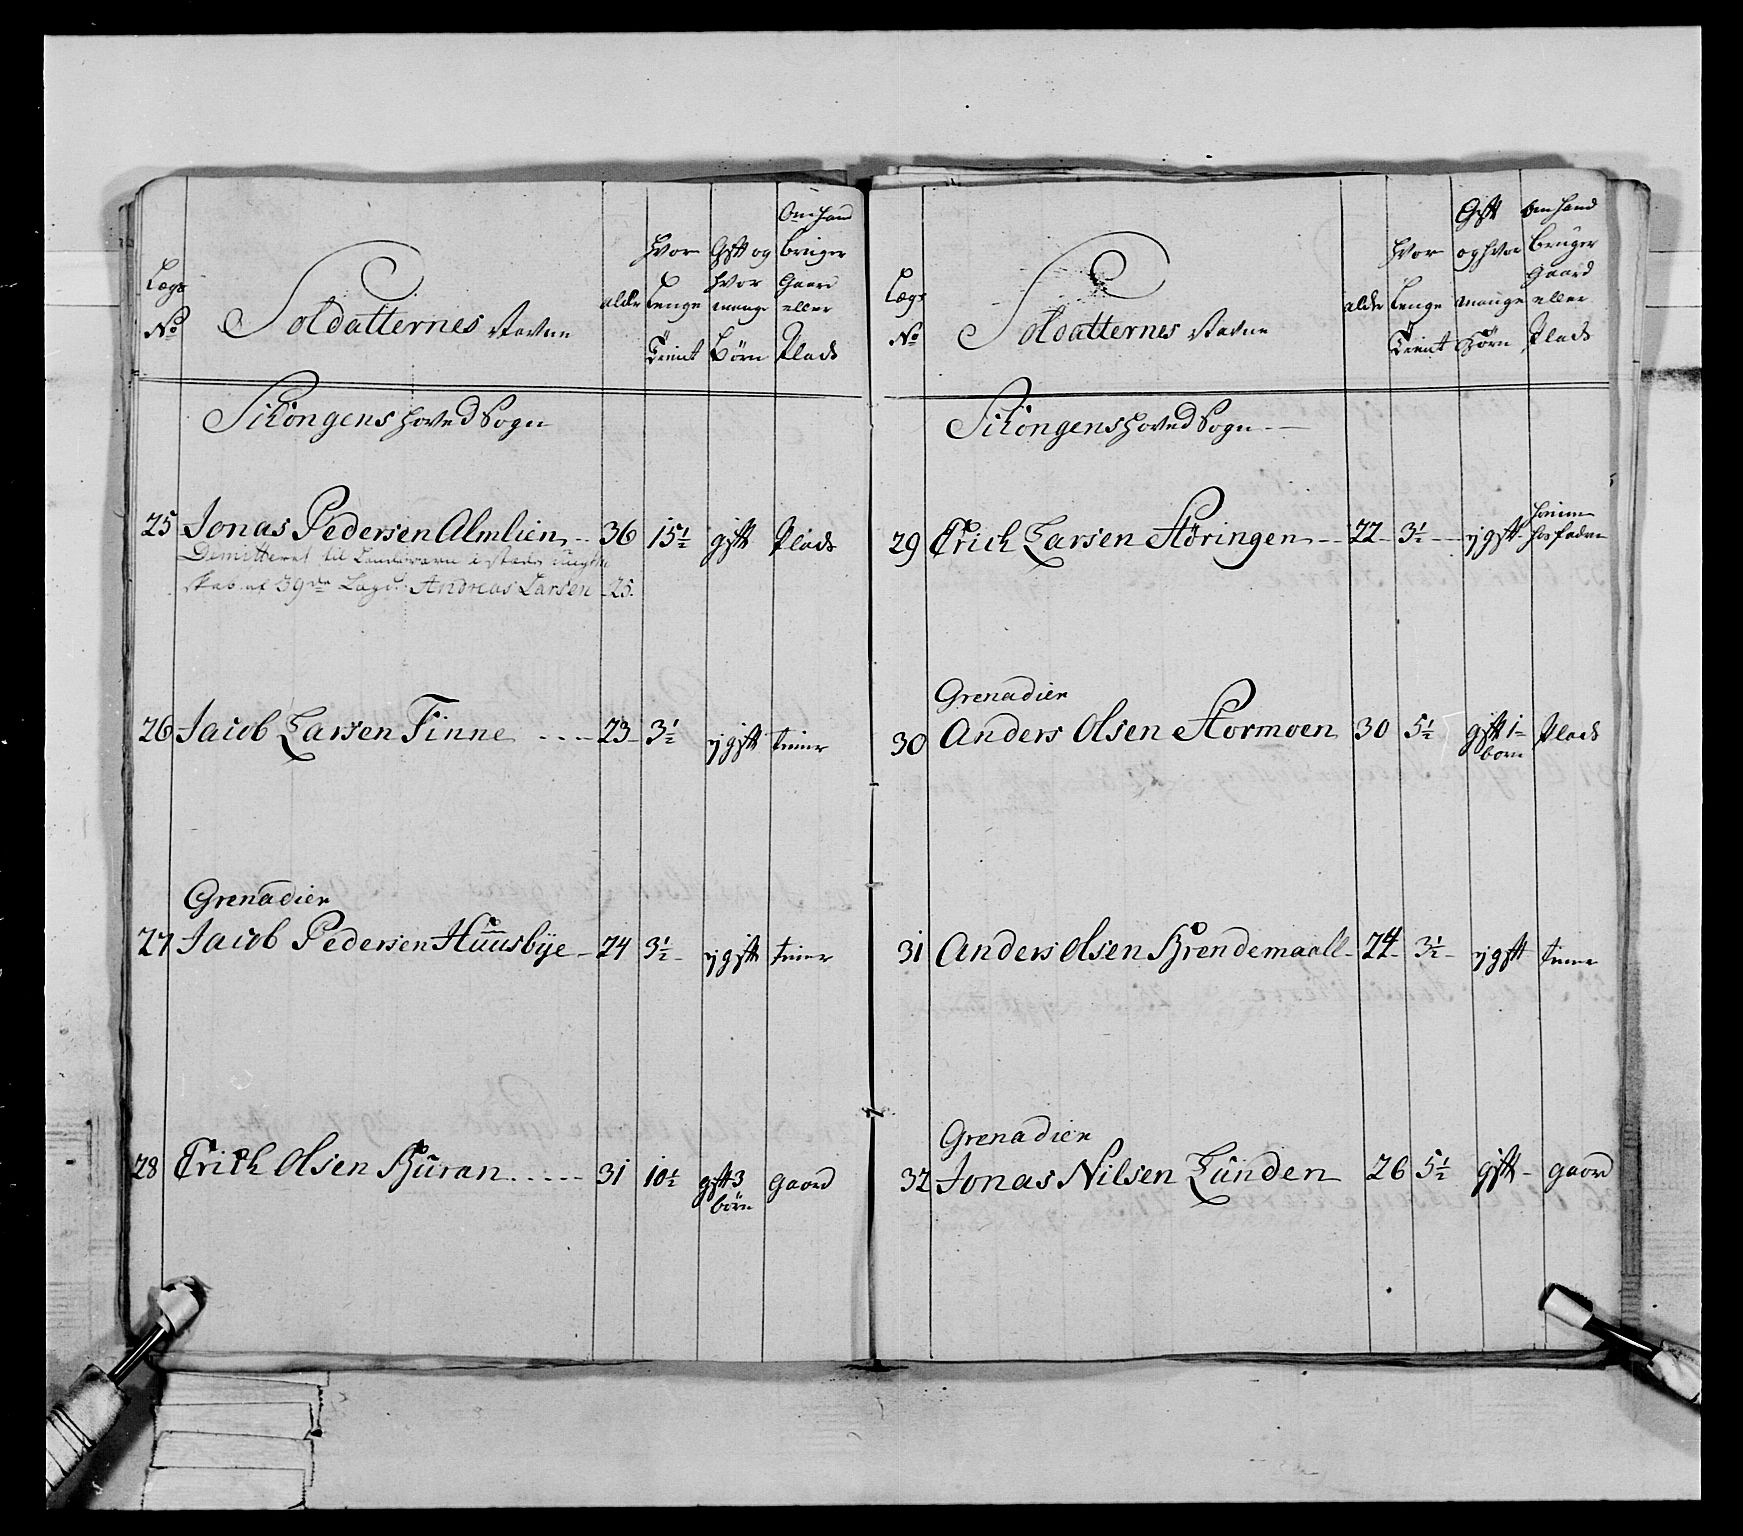 Lægs
No
Soldatternes Navne
alder
Hvor
lenge
Tient
Gift og
hvor
mange
Børn
Om hand
bruger
Gaard
eller
Plads
Stöngens Hoved Sogn
25 Jonas Pedersen Almlien 36 15½ gift Plads
Demitteret til Landeværn i steden
skab af 39de Lægd: Andreas Larsen 25.
26 Jacob Larsen Finne 23 3½ ugift tiener
Grenadier
27 Jacob Pedersen Huusbye 24 3½ ugift tiener
28 Erich Olsen Buran 31 10½ gift 3 gaard
börn
Lægs
No
Soldatternes Navne
alder
Hvor
lenge
Tient
Gift
og hvor
mange
Börn
Om hand
bruger
Gaard
eller
Plads
Stöngens Hoved Sogn
29 Erich Larsen Störingen 22 3½ ugift hiemme
hos faderen
Grenadier
30 Anders Olsen Stormoen 30 5½ gift 1 Plads
born
31 Anders Olsen Brendemaall 24 3½ ugift tiener
Grenadier
32 Jonas Nilsen Lunden 26 5½ gift gaard